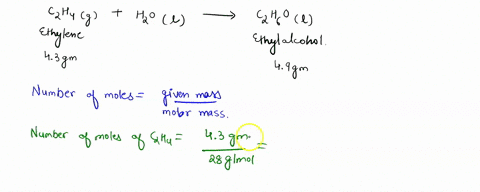 C2H4(g) + H2O(l) ⟶ C2H6O(l)
Ethylene Ethylalcohol.
4.3gm 4.9gm
Number of moles = given mass
molar mass.
Number of moles of C2H4 = 4.3 gm =
28 g/mol